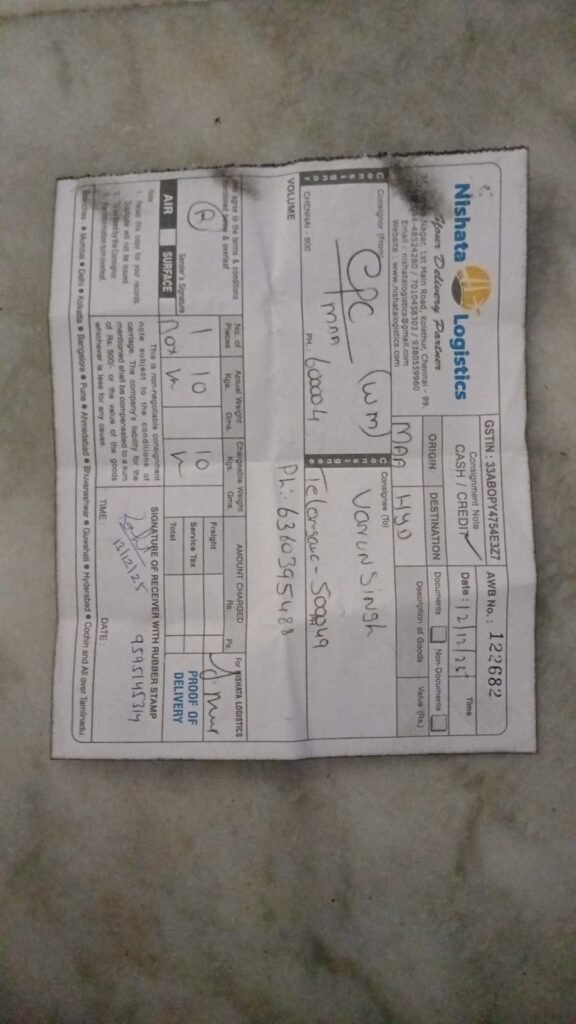 Nishata Logistics
Your Delivery Partner
Nagar, 1st Main Road, Kolathur, Chennai - 99.
48524280 / 7010458303 / 9380559960
Email : nishatalogistics@gmail.com
Website : www.nishatalogistics.com
GSTIN : 33ABOPY4754E3Z7
Consignment Note
CASH / CREDIT
AWB No. : 122682
Date : 12/12/25
Time
ORIGIN
MAA
DESTINATION
HYD
Documents
Non-Documents
Description of Goods
Value (Rs.)
Consignor (From)
CPC (WM)
MAA
CHENNAI - 600
PH. 600004
Consignee (To)
Varun Singh
Telangana - 500049
PH
Ph: 6360395488
VOLUME
agree to the terms & conditions
Sender's Signature
AIR
SURFACE
No. of Pieces
1
Box
Actual Weight
Kgs. Gms.
10
Chargeable Weight
Kgs. Gms.
10
AMOUNT CHARGED
Rs. Ps.
Freight
Service Tax
Total
For NISHATA LOGISTICS
PROOF OF DELIVERY
Note
1. Retain this copy for your records.
This is non-negotiable consignment
note subject to the conditions of
carriage. The company's liability for the
mentioned shall be compensated to a sum
of Rs. 500/- or the value of the goods
whichever is less for any cause
SIGNATURE OF RECEIVER WITH RUBBER STAMP
12/12/25
9595145314
TIME :
DATE :
Mumbai ● Delhi ● Kolkatta ● Bangalore ● Pune ● Ahmedabad ● Bhuvaneshwar ● Guwahati ● Hyderabad ● Cochin and All over Tamilnadu